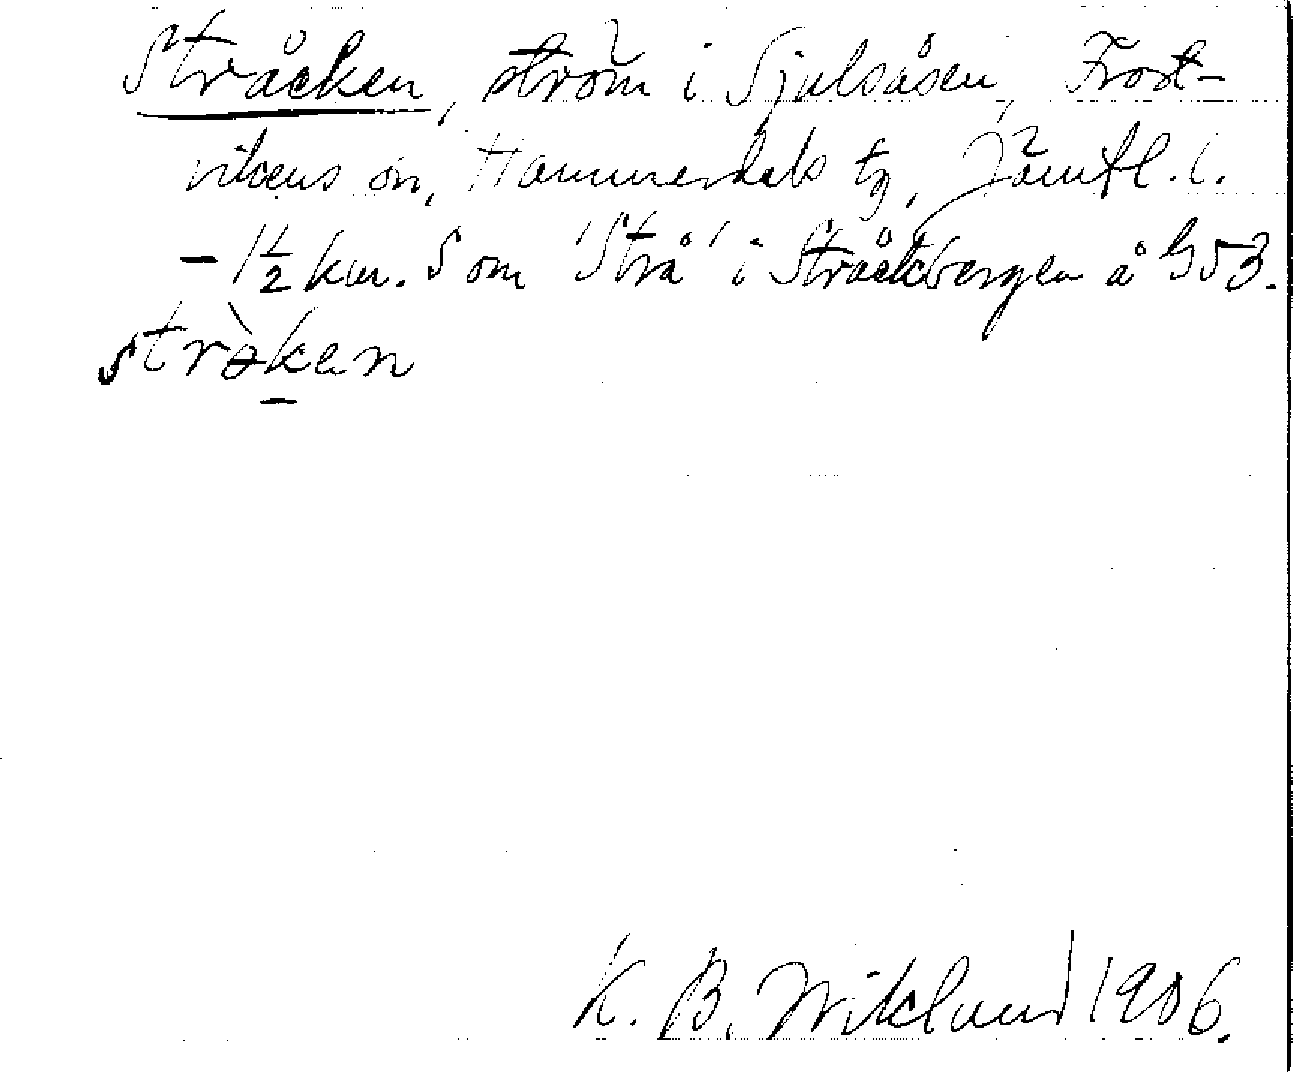 Stråcken, ström i Sjulsåsen, Frost-
vikens sn, Hammerdals tg, Jämtl. l.
- 1½ km. S om 'Strå' i Stråckbergen å G53.
stròken
K. B. Wiklund 1906.